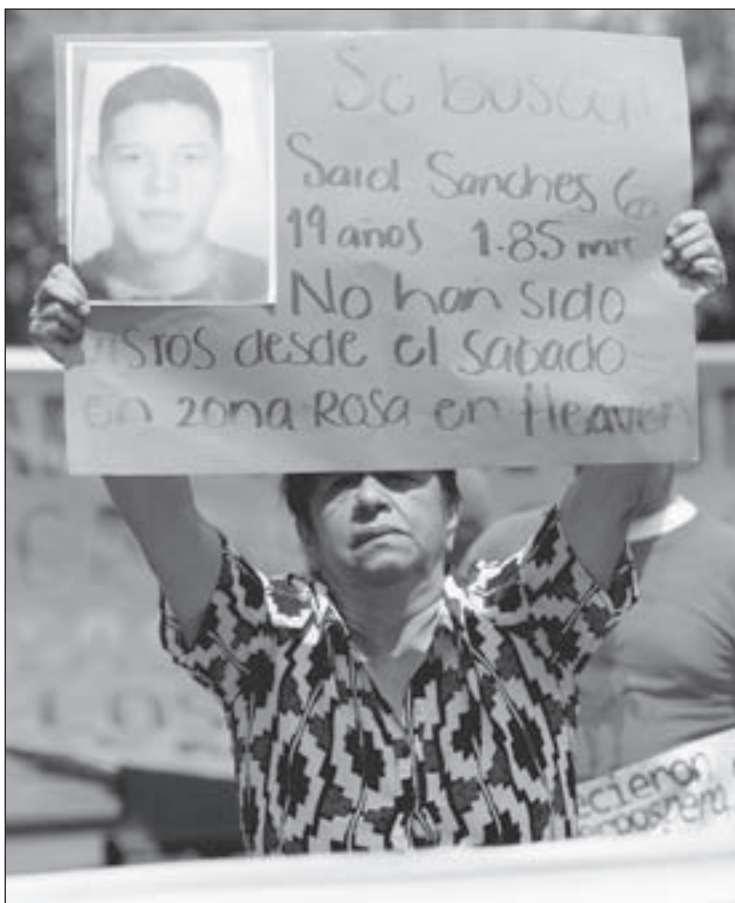 Se busca
Said Sanches G
19 años 1.85 mtr
No han sido
istos desde el Sabado
en zona Rosa en Heaven
ecieron